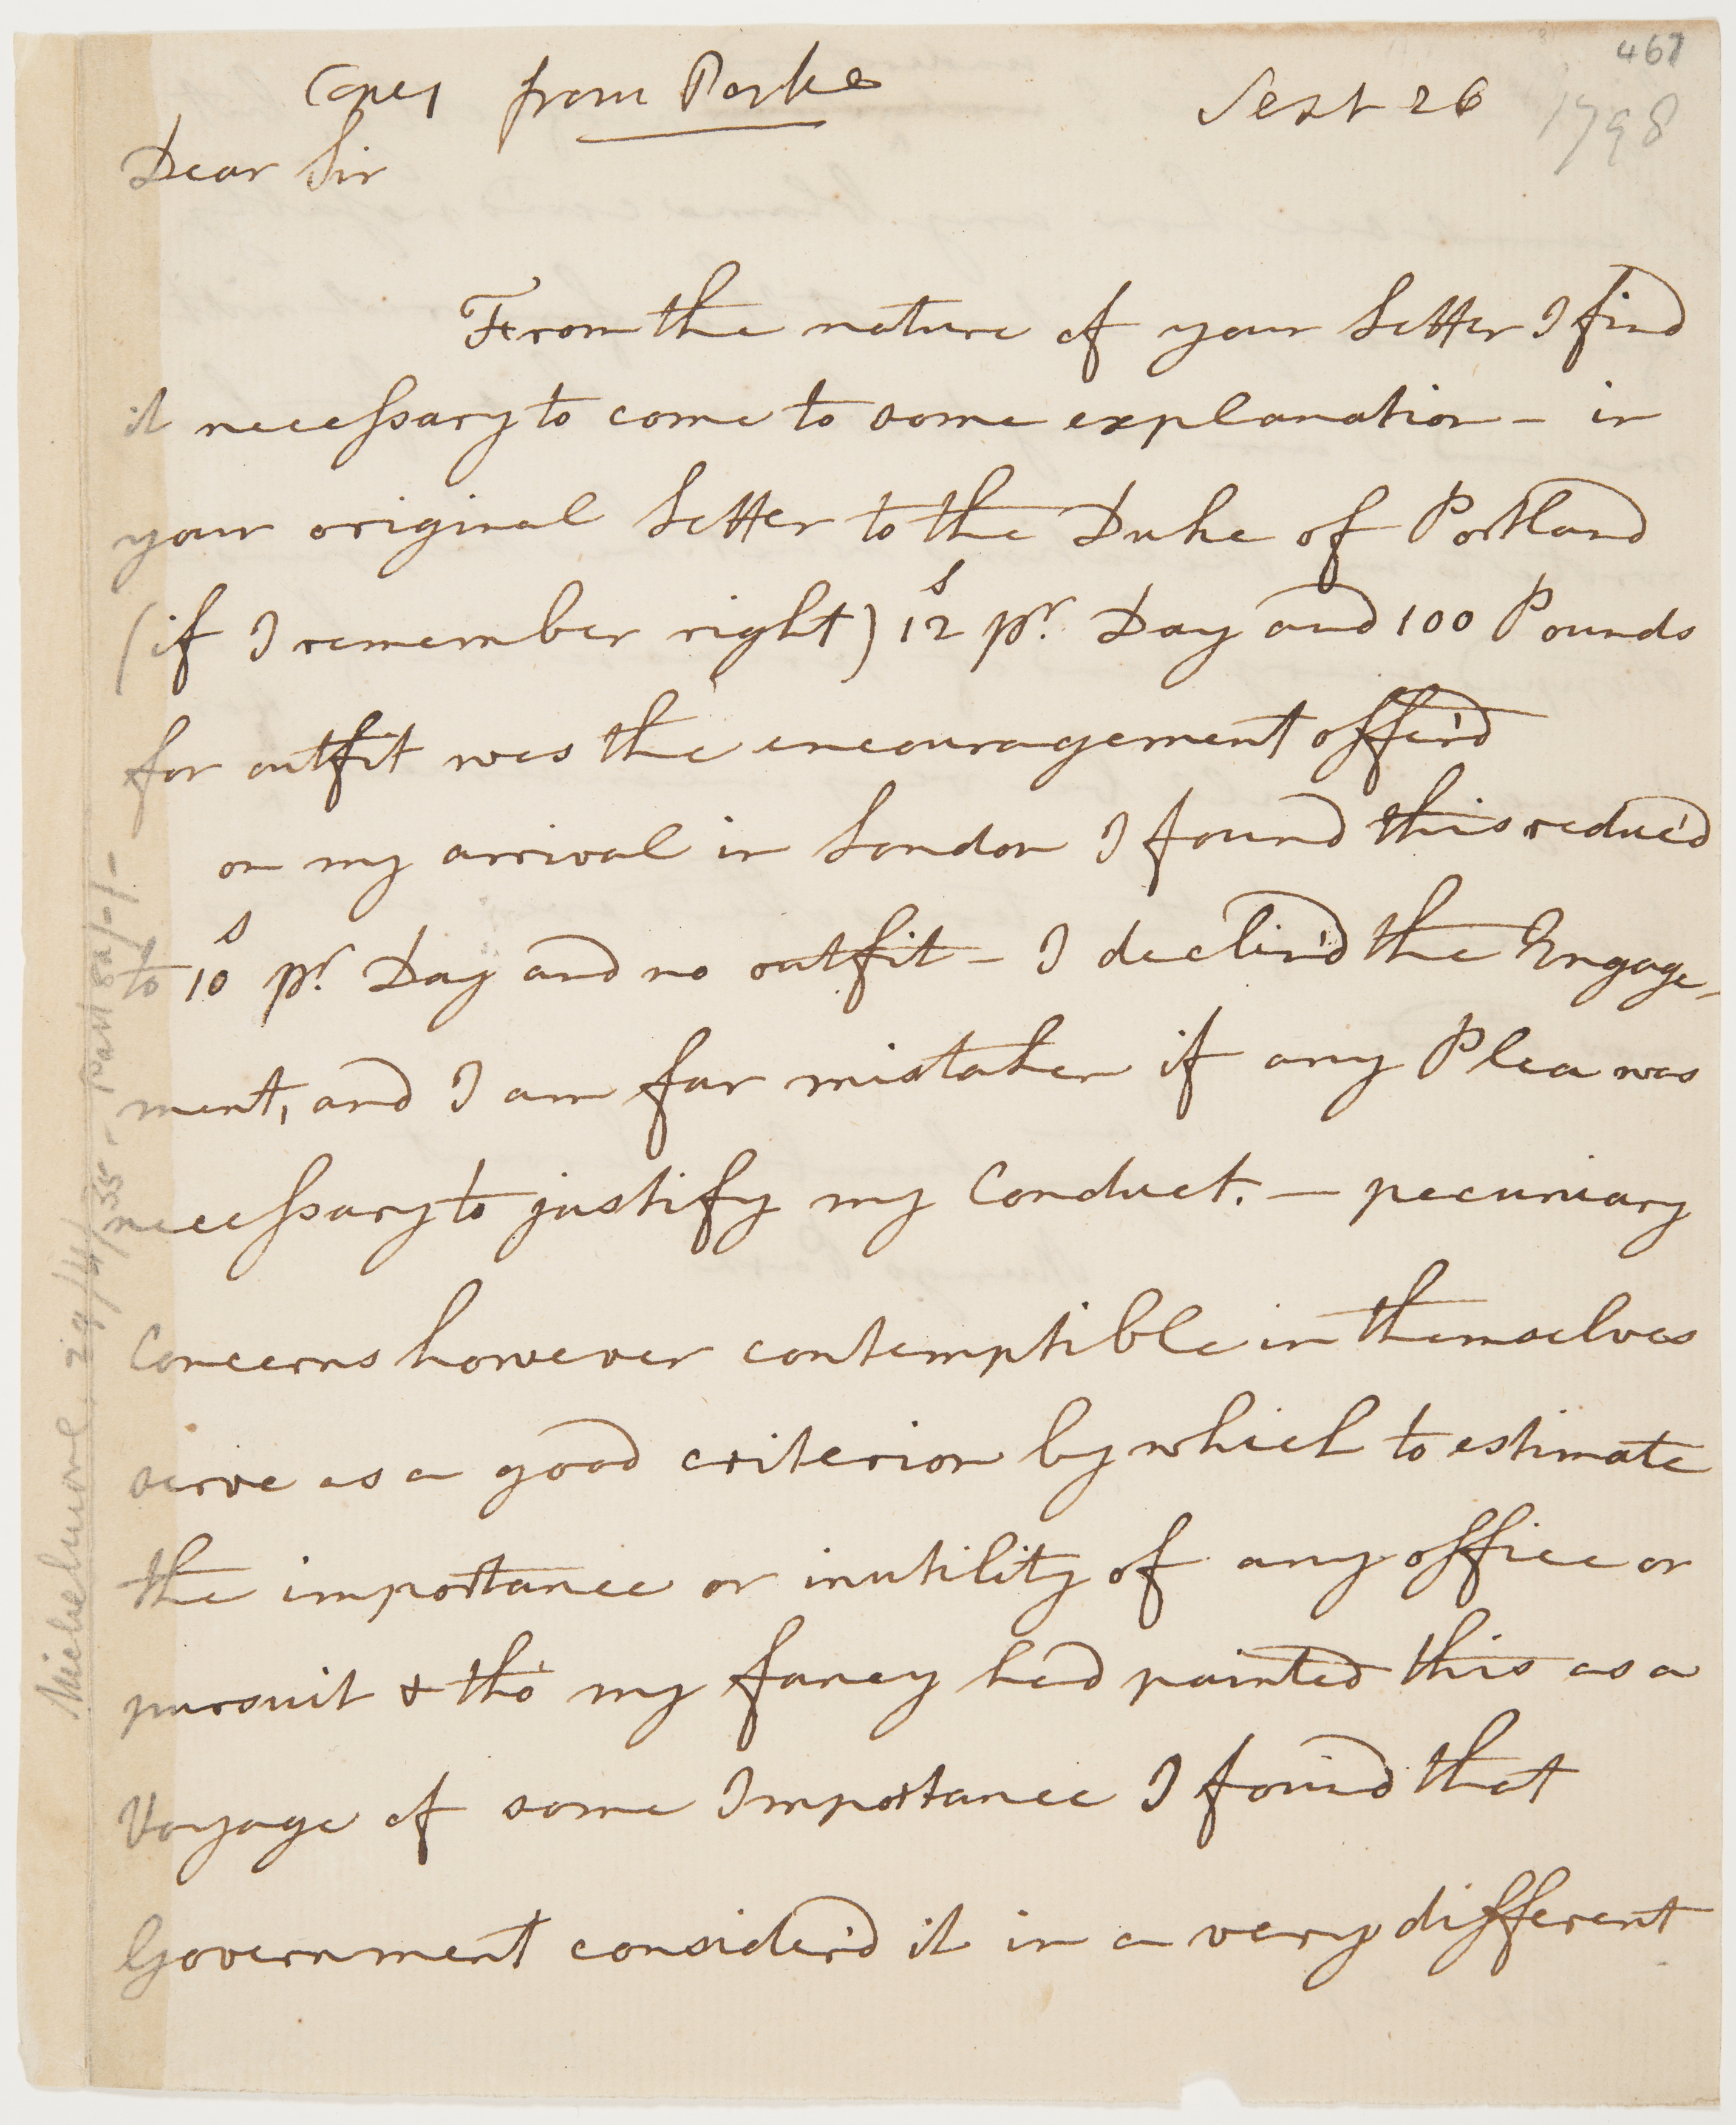 467
Copy from Parke Sept 26 1798
Dear Sir
From the nature of your Letter I find
it necessary to come to some explanation – in
your original Letter to the Duke of Portland
(if I remember right) 12s pr. Day and 100 Pounds
for outfit was the encouragement offer'd
on my arrival in London I found this reduc'd
to 10s pr. Day and no outfit – I declin'd the Engage-
ment, and I am far mistaken if any Plea was
necessary to justify my Conduct. — pecuniary
Concerns however contemptible in themselves
serve as a good criterion by which to estimate
the importance or inutility of any office or
pursuit & tho' my fancy had painted this as a
Voyage of some Importance I found that
Government consider'd it in a very different
Michelmore 29/4/35 - Part 82/-/-